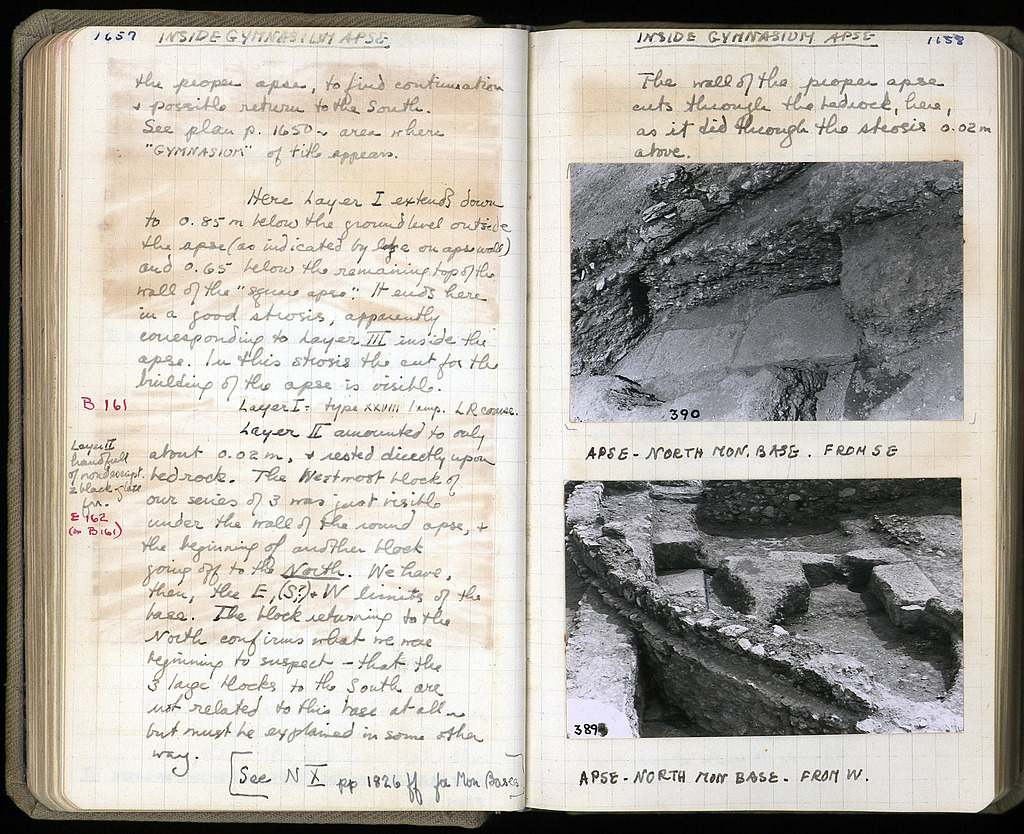 1657 INSIDE GYMNASIUM APSE
the proper apse, to find continuation
+ possible return to the South.
See plan p. 1650 ~ area where
"GYMNASIUM" of title appears.
Here Layer I extends down
to 0.85 m below the ground level outside
the apse (as indicated by on apse wall)
and 0.65 below the remaining top of the
wall of the "square apse". It ends here
in a good strosis, apparently
corresponding to Layer III inside the
apse. In this strosis the cut for the
building of the apse is visible.
B 161
Layer I = type XXVIII / imp. LR coarse.
Layer II amounted to only
about 0.02 m, + rested directly upon
bedrock. The Westmost block of
our series of 3 was just visible
under the wall of the round apse, +
the beginning of another block
going off to the North. We have,
then, the E, (S?) + W limits of the
base. The block returning to the
North confirms what we were
beginning to suspect - that the
3 large blocks to the South are
not related to this base at all ~
but must be explained in some other
way.
Layer II
handfull
of nondescript.
2 black-glaze
fr.
E 162
(in B 161)
[See N X pp 1826 ff for Mon Bases]
INSIDE GYMNASIUM APSE 1658
The wall of the proper apse
cuts through the bedrock, here,
as it did through the strosis 0.02 m
above.
390
APSE - NORTH MON. BASE. FROM SE
389
APSE - NORTH MON BASE - FROM W.